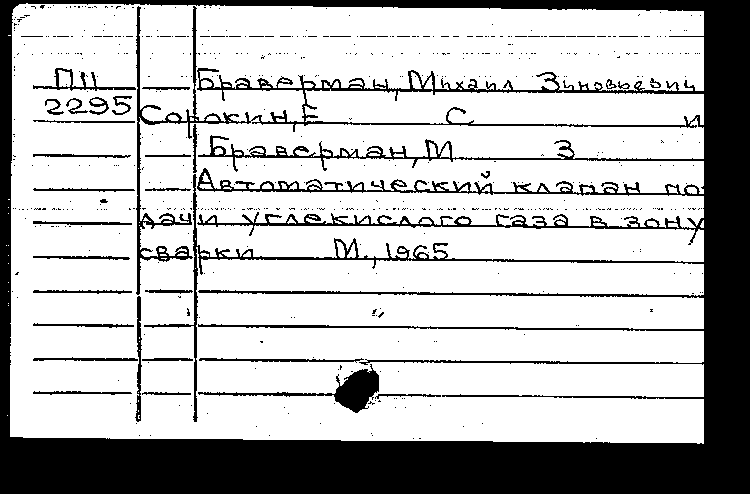 ПII Браверман, Михаил Зиновьевич
2295 Сорокин, Е С и
Браверман, М З
Автоматический клапан по-
дачи углекислого газа в зону
сварки М., 1965